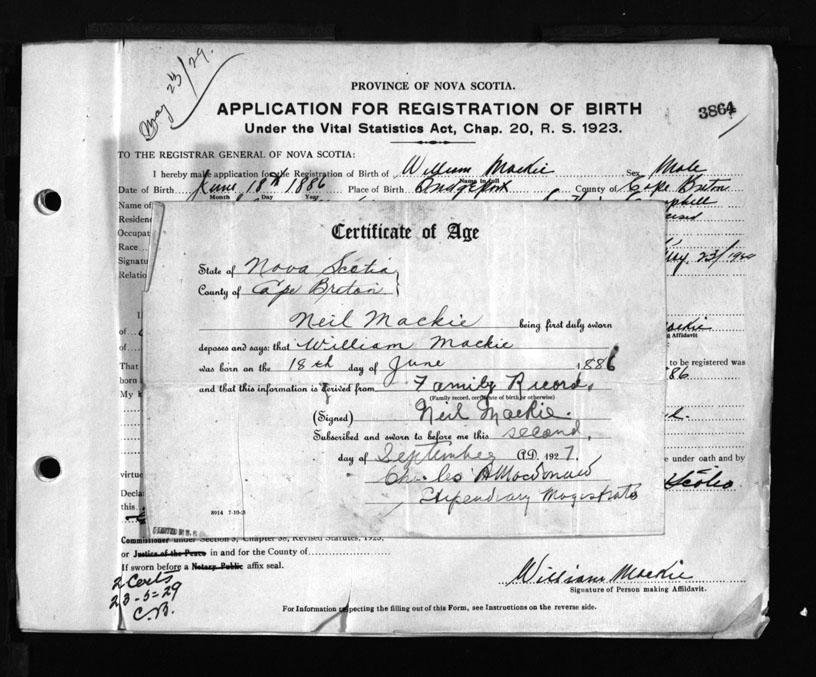 May 23/29.
PROVINCE OF NOVA SCOTIA.
APPLICATION FOR REGISTRATION OF BIRTH
3864
Under the Vital Statistics Act, Chap. 20, R. S. 1923.
TO THE REGISTRAR GENERAL OF NOVA SCOTIA:
I hereby make application for the Registration of Birth of William Mackie Sex Male
Name in full
Date of Birth June 18th 1886 Place of Birth Bridgeport County of Cape Breton
Month Day Year
Name of
Residen
Occupat
Race
Signatu
Relatio
Certificate of Age
State of Nova Scotia
County of Cape Breton
Neil Mackie being first duly sworn
deposes and says: that William Mackie
was born on the 18th day of June 1886
and that this information is derived from Family Record,
(Family record, certificate of birth or otherwise)
(Signed) Neil Mackie.
Subscribed and sworn to before me this second,
day of September A.D. 1927.
Charles A MacDonald
Stipendiary Magistrate
8014 7-10-
of
of
That
born
My k
virtue
Declar
this
Affidavit
to be registered was
86
e under oath and by
Scotia
Commissioner under Section 3, Chapter 38, Revised Statutes, 1923,
or Justice of the Peace in and for the County of
If sworn before a Notary Public affix seal.
2 Certs
23-5-29
C.B.
William Mackie
Signature of Person making Affidavit.
For Information respecting the filling out of this Form, see Instructions on the reverse side.